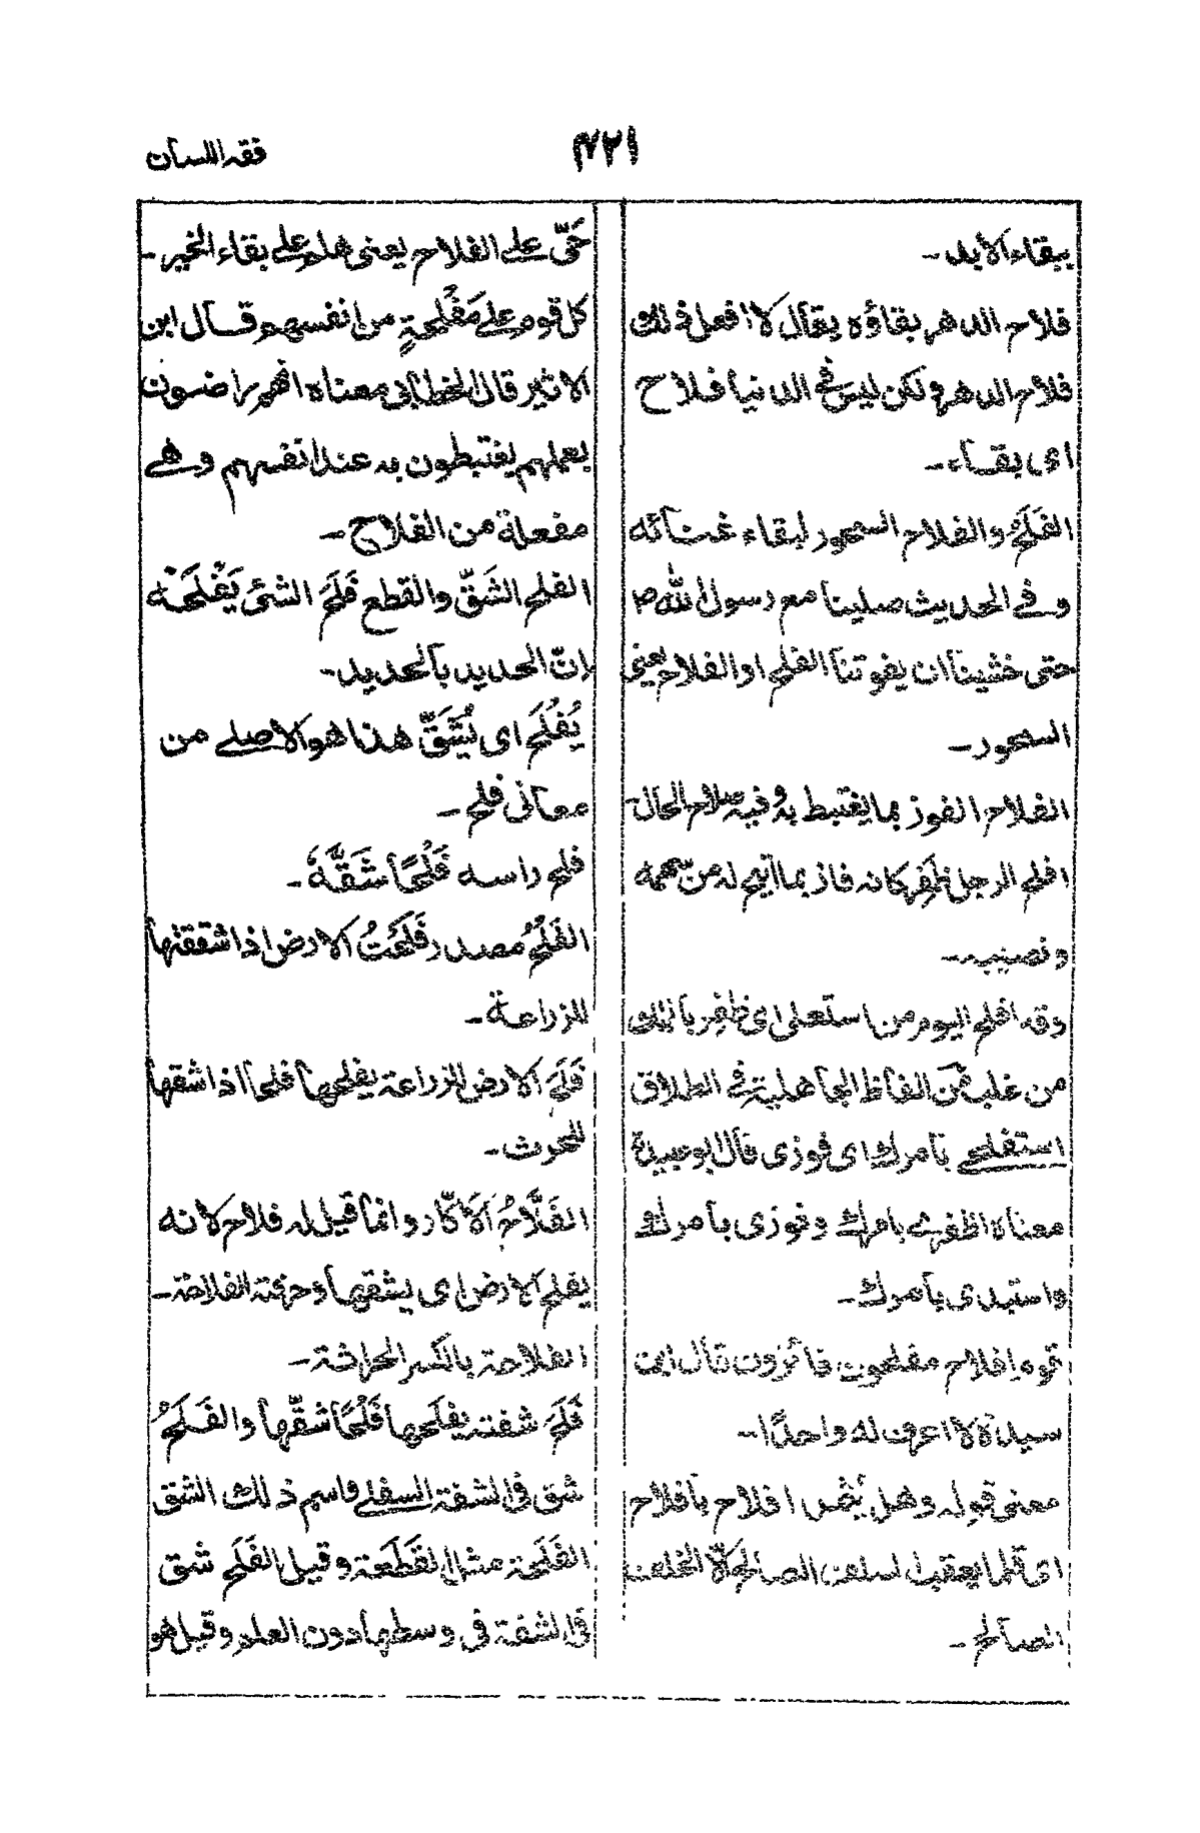 فقه اللسان
٧٢١
ببقاء الأبد۔
فلاح الدهر بقاؤه يقال لا افعل ذلك
فلاح الدهر ولكن ليس في الدنيا فلاح
اى بقاء۔
الفَلَحُ والفلاح السحور لبقاء غنائه
وفي الحديث صلينا مع رسول الله ص
حتى خشينا ان يفوتنا الفلح او الفلاح يعني
السحور۔
الفلاح الفوز بما يغتبط به وفيه صلاح الحال
افلح الرجل ظفر كانه فاز بما اتيح له من سهمه
ونصيبه۔
وقد افلح اليوم من استعلى اى ظفر بالملك
من غلب من الفاظ الجاهلية في الطلاق
استفلحي بامرك اى فوزى قال ابو عبيدة
معناه اظفرى بامرك وفوزى بامرك
واستبدى بامرك۔
قوم افلاح مفلحون فائزون قال ابن
سيدة لا اعرف له واحدًا۔
معنى قوله وهل يثمر افلاح بافلاح
اى قلما يعقب السلف الصالح الا الخلف
الصالح۔
حَىّ على الفلاح يعنى هلم على بقاء الخير۔
كل قوم على مَفْلَحةٍ من انفسهم قال ابن
الاثير قال الخطابى معناه انهم راضون
بعملهم يغتبطون به عند انفسهم وهى
مفعلة من الفلاح۔
الفلح الشَقّ والقطع فَلَحَ الشئ يَفْلَحُه
انّ الحديد بالحديد۔
يُفْلَحَ اى يُشَقّ هذا هو الاصلى من
معانى فلح۔
فلح راسه فَلْحًا شَقَّهُ۔
الفَلْحُ مصدر فَلَحْتُ الارض اذا شققتها
للزراعة۔
فَلَحَ الارض للزراعة يفلحها فلحا اذا شقها
للحرث۔
الفَلَّاحُ الأكّار وانما قيل له فلاح لانه
يفلح الارض اى يشقها وحرفته الفلاحة۔
الفلاحة بالكسر الحراثة۔
فَلَحَ شفته يفلَحها فَلْحًا شقّها والفَلَحُ
شق في الشفة السفلى واسم ذلك الشق
الفَلَحَة مثل القَطَعَة وقيل الفَلَح شق
في الشفة في وسطها دون العلم وقيل هو